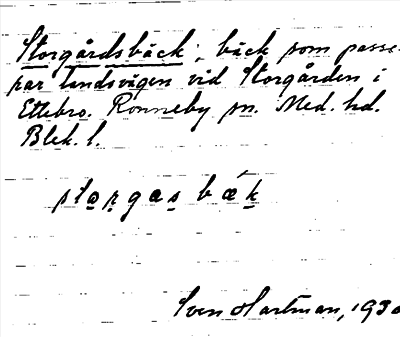 Storgårdsbäck, bäck som passe-
rar landsvägen vid Storgården i
Ettebro. Ronneby sn. Med. hd.
Blek. l.
storgasbäk
Sven Hartman, 1930